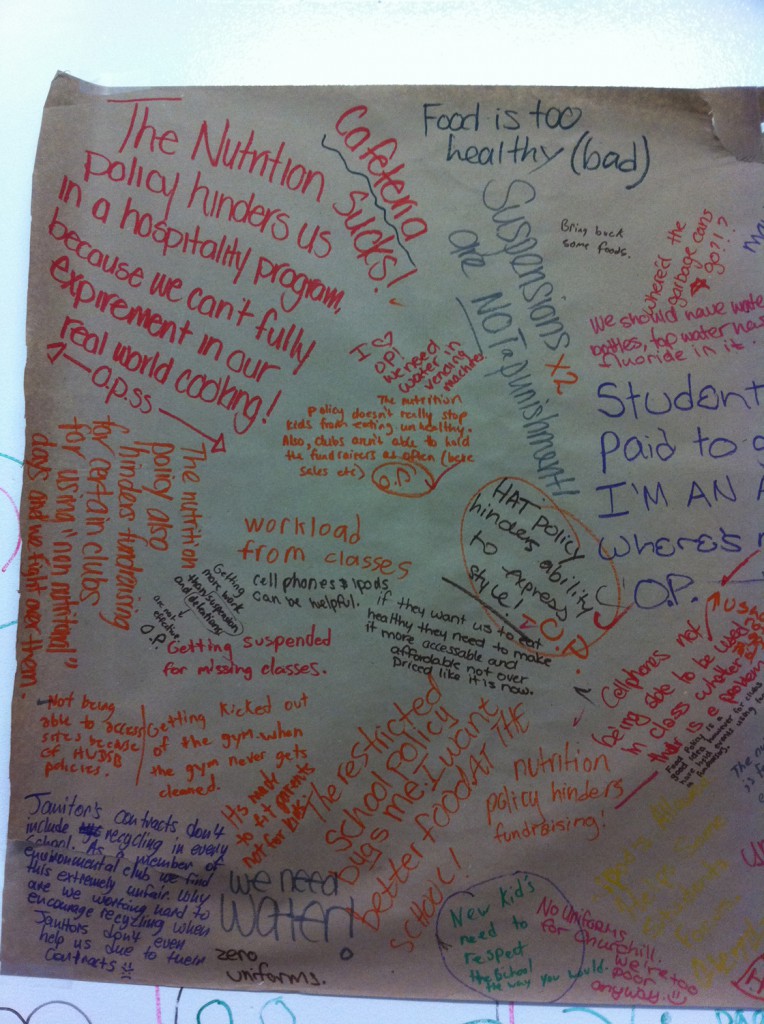 The Nutrition
policy hinders us
in a hospitality program,
because we can't fully
expirement in our
real world cooking!
O.P.SS
Cafeteria
Sucks!
Food is too
healthy (bad)
Suspensions x2
are NOT a punishment!
Bring back
some foods.
where'd the
garbage cans
go?!?
We should have wate
bottles, tap water has
fluoride in it.
Student
Paid to
I'M AN A
Where's
O.P.
I ♡
O.P!
We need
water in
vending
machine!
The nutrition
policy doesn't really stop
kids from eating unhealthy.
Also, clubs aren't able to hold
the fundraisers as often (bake
sales etc)
O.P.
The nutrition
policy also
hinders fundraising
for certain clubs
for using "non nutritional"
days and we fight over them.
workload
from classes
cellphones & ipods
can be helpful.
Getting
more work
than suspension
and detentions
are not
effective
O.P.
Getting suspended
for missing classes.
HAT policy
hinders ability
to express
style!
O.P.
if they want us to eat
healthy they need to make
it more accessable and
affordable not over
priced like it is now.
Cellphones not
being able to be used
in class whether
ther is e problem
Food Policy is a
good idea however for clubs
Not being
able to access
sites because
of HWDSB
policies.
Getting kicked out
of the gym when
the gym never gets
cleaned.
Its made
to fit parents
not for kids!
The restricted
school policy
bugs me: I want
better food AT THE
SCHOOL!
nutrition
policy hinders
fundraising!
Janitor's contracts don't
include recycling in every
School. As a member of
environmental club we find
this extremely unfair. Why
are we working hard to
encourage recycling when
Janitors don't even
help us due to them
contracts
we need
WATER!
zero
uniforms.
New Kid's
need to
respect
the school
the way you would.
No Uniforms
for Churchill.
we're too
poor
anyway. :)